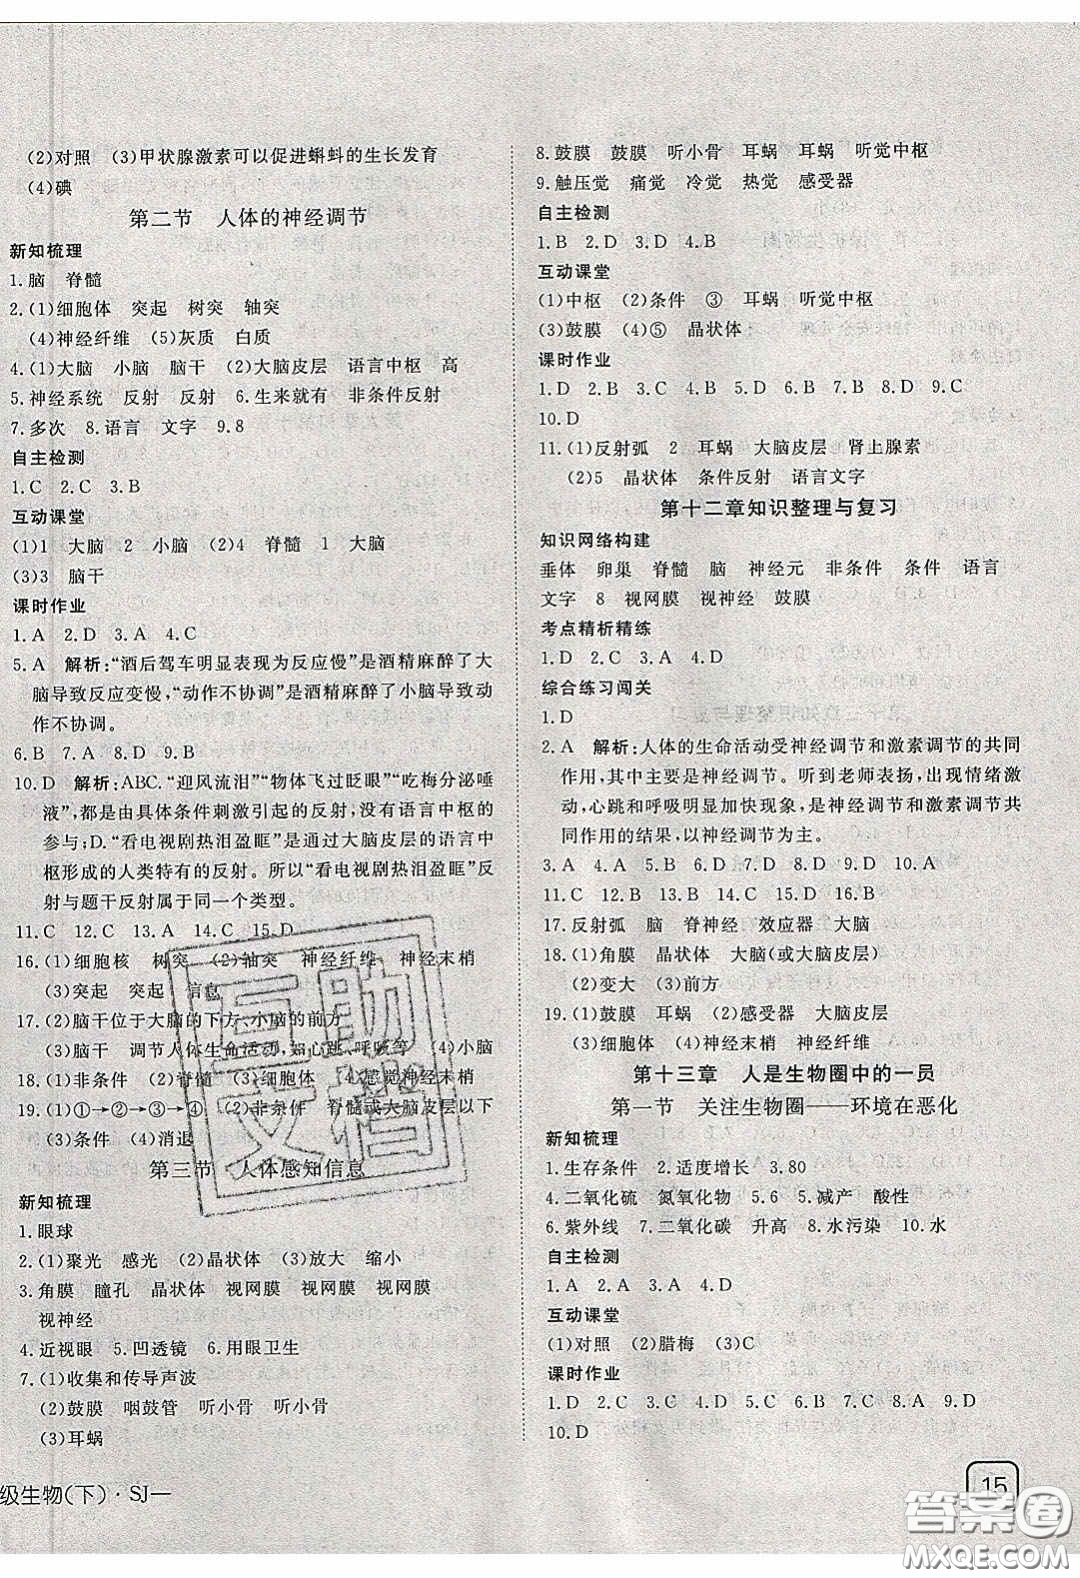 (2)对照 (3)甲状腺激素可以促进蝌蚪的生长发育
(4)碘
第二节 人体的神经调节
新知梳理
1.脑 脊髓
2.(1)细胞体 突起 树突 轴突
(4)神经纤维 (5)灰质 白质
4.(1)大脑 小脑 脑干 (2)大脑皮层 语言中枢 高
5.神经系统 反射 反射 6.生来就有 非条件反射
7.多次 8.语言 文字 9.8
自主检测
1.C 2.C 3.B
互动课堂
(1)1 大脑 2 小脑 (2)4 脊髓 1 大脑
(3)3 脑干
课时作业
1.A 2.D 3.A 4.C
5.A 解析:“酒后驾车明显表现为反应慢”是酒精麻醉了大
脑导致反应变慢,“动作不协调”是酒精麻醉了小脑导致动
作不协调。
6.B 7.A 8.D 9.B
10.D 解析:ABC.“迎风流泪”“物体飞过眨眼”“吃梅分泌唾
液”,都是由具体条件刺激引起的反射,没有语言中枢的
参与;D.“看电视剧热泪盈眶”是通过大脑皮层的语言中
枢形成的人类特有的反射。所以“看电视剧热泪盈眶”反
射与题干反射属于同一个类型。
11.C 12.C 13.A 14.C 15.D
16.(1)细胞核 树突 (2)轴突 神经纤维 神经末梢
(3)突起 突起 信息
17.(2)脑干位于大脑的下方、小脑的前方
(3)脑干 调节人体生命活动,如心跳、呼吸等 (4)小脑
18.(1)非条件 (2)脊髓 (3)细胞体 (4)感觉神经末梢
19.(1)①→②→③→④ (2)非条件 脊髓或大脑皮层以下
(3)条件 (4)消退
第三节 人体感知信息
新知梳理
1.眼球
2.(1)聚光 感光 (2)晶状体 (3)放大 缩小
3.角膜 瞳孔 晶状体 视网膜 视网膜 视网膜
视神经
4.近视眼 5.凹透镜 6.用眼卫生
7.(1)收集和传导声波
(2)鼓膜 咽鼓管 听小骨 听小骨
(3)耳蜗
级生物(下)·SJ—
8.鼓膜 鼓膜 听小骨 耳蜗 耳蜗 听觉中枢
9.触压觉 痛觉 冷觉 热觉 感受器
自主检测
1.B 2.D 3.D 4.B
互动课堂
(1)中枢 (2)条件 ③ 耳蜗 听觉中枢
(3)鼓膜 (4)⑤ 晶状体
课时作业
1.D 2.B 3.C 4.D 5.D 6.B 7.B 8.D 9.C
10.D
11.(1)反射弧 2 耳蜗 大脑皮层 肾上腺素
(2)5 晶状体 条件反射 语言文字
第十二章知识整理与复习
知识网络构建
垂体 卵巢 脊髓 脑 神经元 非条件 条件 语言
文字 8 视网膜 视神经 鼓膜
考点精析精练
1.D 2.C 3.A 4.D 5.D
综合练习闯关
1.D
2.A 解析:人体的生命活动受神经调节和激素调节的共同
作用,但其中主要是神经调节。听到老师表扬,出现情绪激
动,心跳和呼吸明显加快现象,是神经调节和激素调节共
同作用的结果,以神经调节为主。
3.A 4.A 5.D 6.D 7.D 8.D 9.D 10.A
11.C 12.C 13.D 14.B 15.B 16.D
17.反射弧 脑 脊神经 效应器 大脑
18.(1)角膜 晶状体 大脑(或大脑皮层)
(2)变大 (3)前方
19.(1)鼓膜 耳蜗 (2)感受器 大脑皮层
(3)细胞体 (4)神经末梢 神经纤维
第十三章 人是生物圈中的一员
第一节 关注生物圈——环境在恶化
新知梳理
1.生存条件 2.适度增长 3.80
4.二氧化硫 氮氧化物 5.6 5.减产 酸性
6.紫外线 7.二氧化碳 升高 8.水污染 10.水
自主检测
1.A 2.A 3.A 4.D
互动课堂
(1)对照 (2)腊梅 (3)C
课时作业
1.D 2.C 3.C 4.D 5.C 6.D 7.C 8.A 9.D
10.D
15
互助
文档
答案圈
MXQE.COM